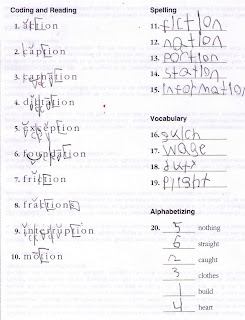 Coding and Reading
1. action
2. caption
3. carnation
4. dictation
5. exception
6. foundation
7. friction
8. fractions
9. interruption
10. motion
Spelling
11. fiction
12. nation
13. portion
14. station
15. information
Vocabulary
16. gulch
17. wage
18. duty
19. plight
Alphabetizing
20. 5 nothing
6 straight
2 caught
3 clothes
1 build
4 heart